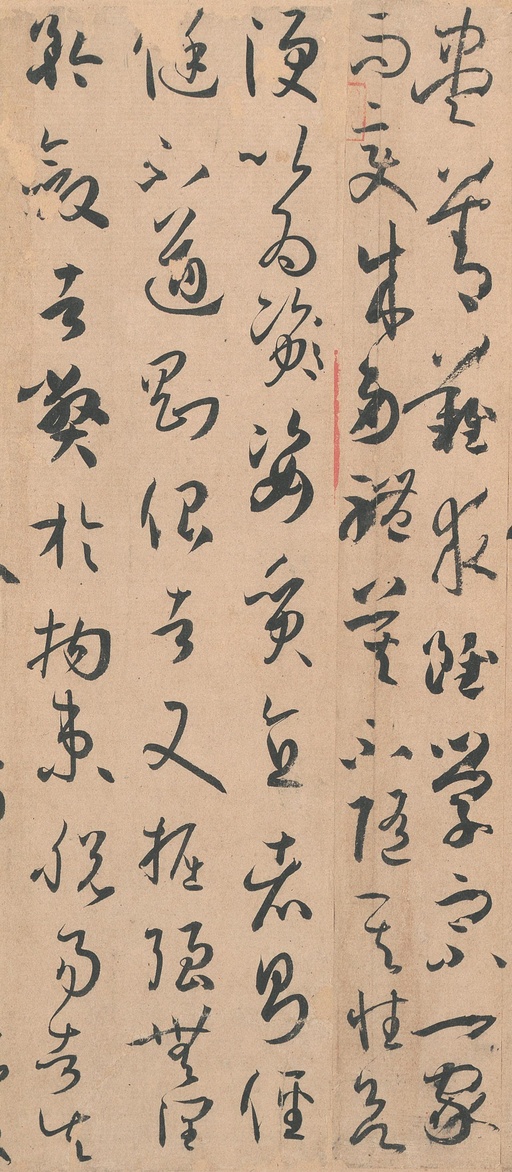 盡善難求雖學宗一家
而變成多體莫不隨其性欲
便以為姿姿質直者則俓
侹不遒剛佷者又掘強無潤
矜斂者弊於拘束脫易者失